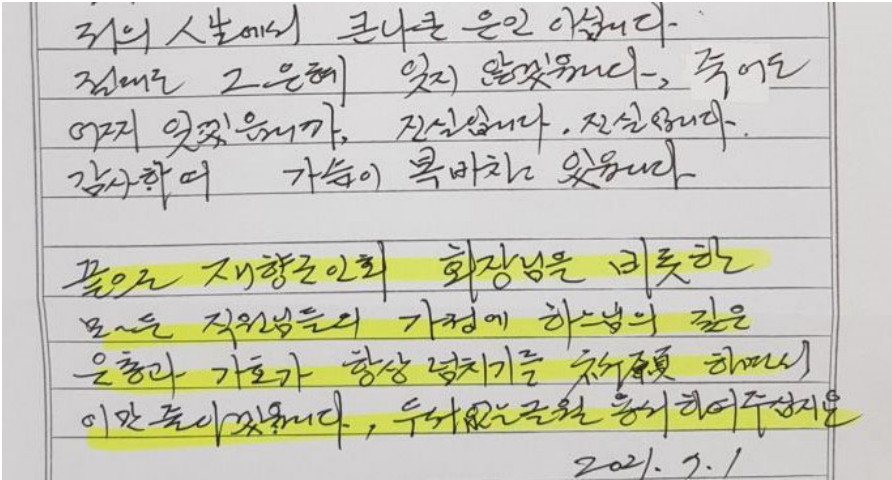 저의 인생에서 큰나큰 은인 이십니다.
절대로 그 은혜 잊지 않겠읍니다, 죽어도
어찌 잊겠읍니까, 진실입니다. 진실입니다.
감사하며 가슴이 복바치고 있읍니다
끝으로 재향군인회 회장님을 비롯한
모-든 직원님들의 가정에 하느님의 깊은
은총과 가호가 항상 넘치기를 祈願 하면서
이만 줄이겠읍니다, 두서없는글월 용서하여주십지요
2021. 7. 1